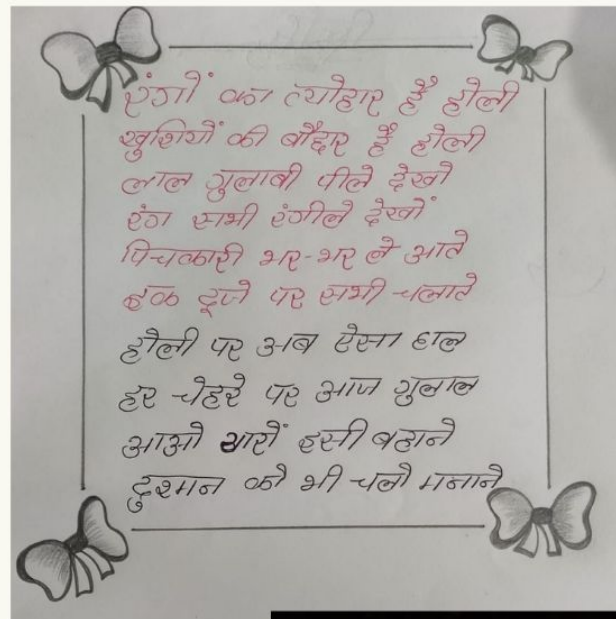 रंगों का त्योहार हैं होली
खुशियों की बौछार हैं होली
लाल गुलाबी पीले देखो
रंग सभी रंगीले देखों
पिचकारी भर-भर ले आते
इक दूजे पर सभी चलाते
होली पर अब ऐसा हाल
हर चेहरे पर आज गुलाल
आओ यारों इसी बहाने
दुश्मन को भी चलो मनाने